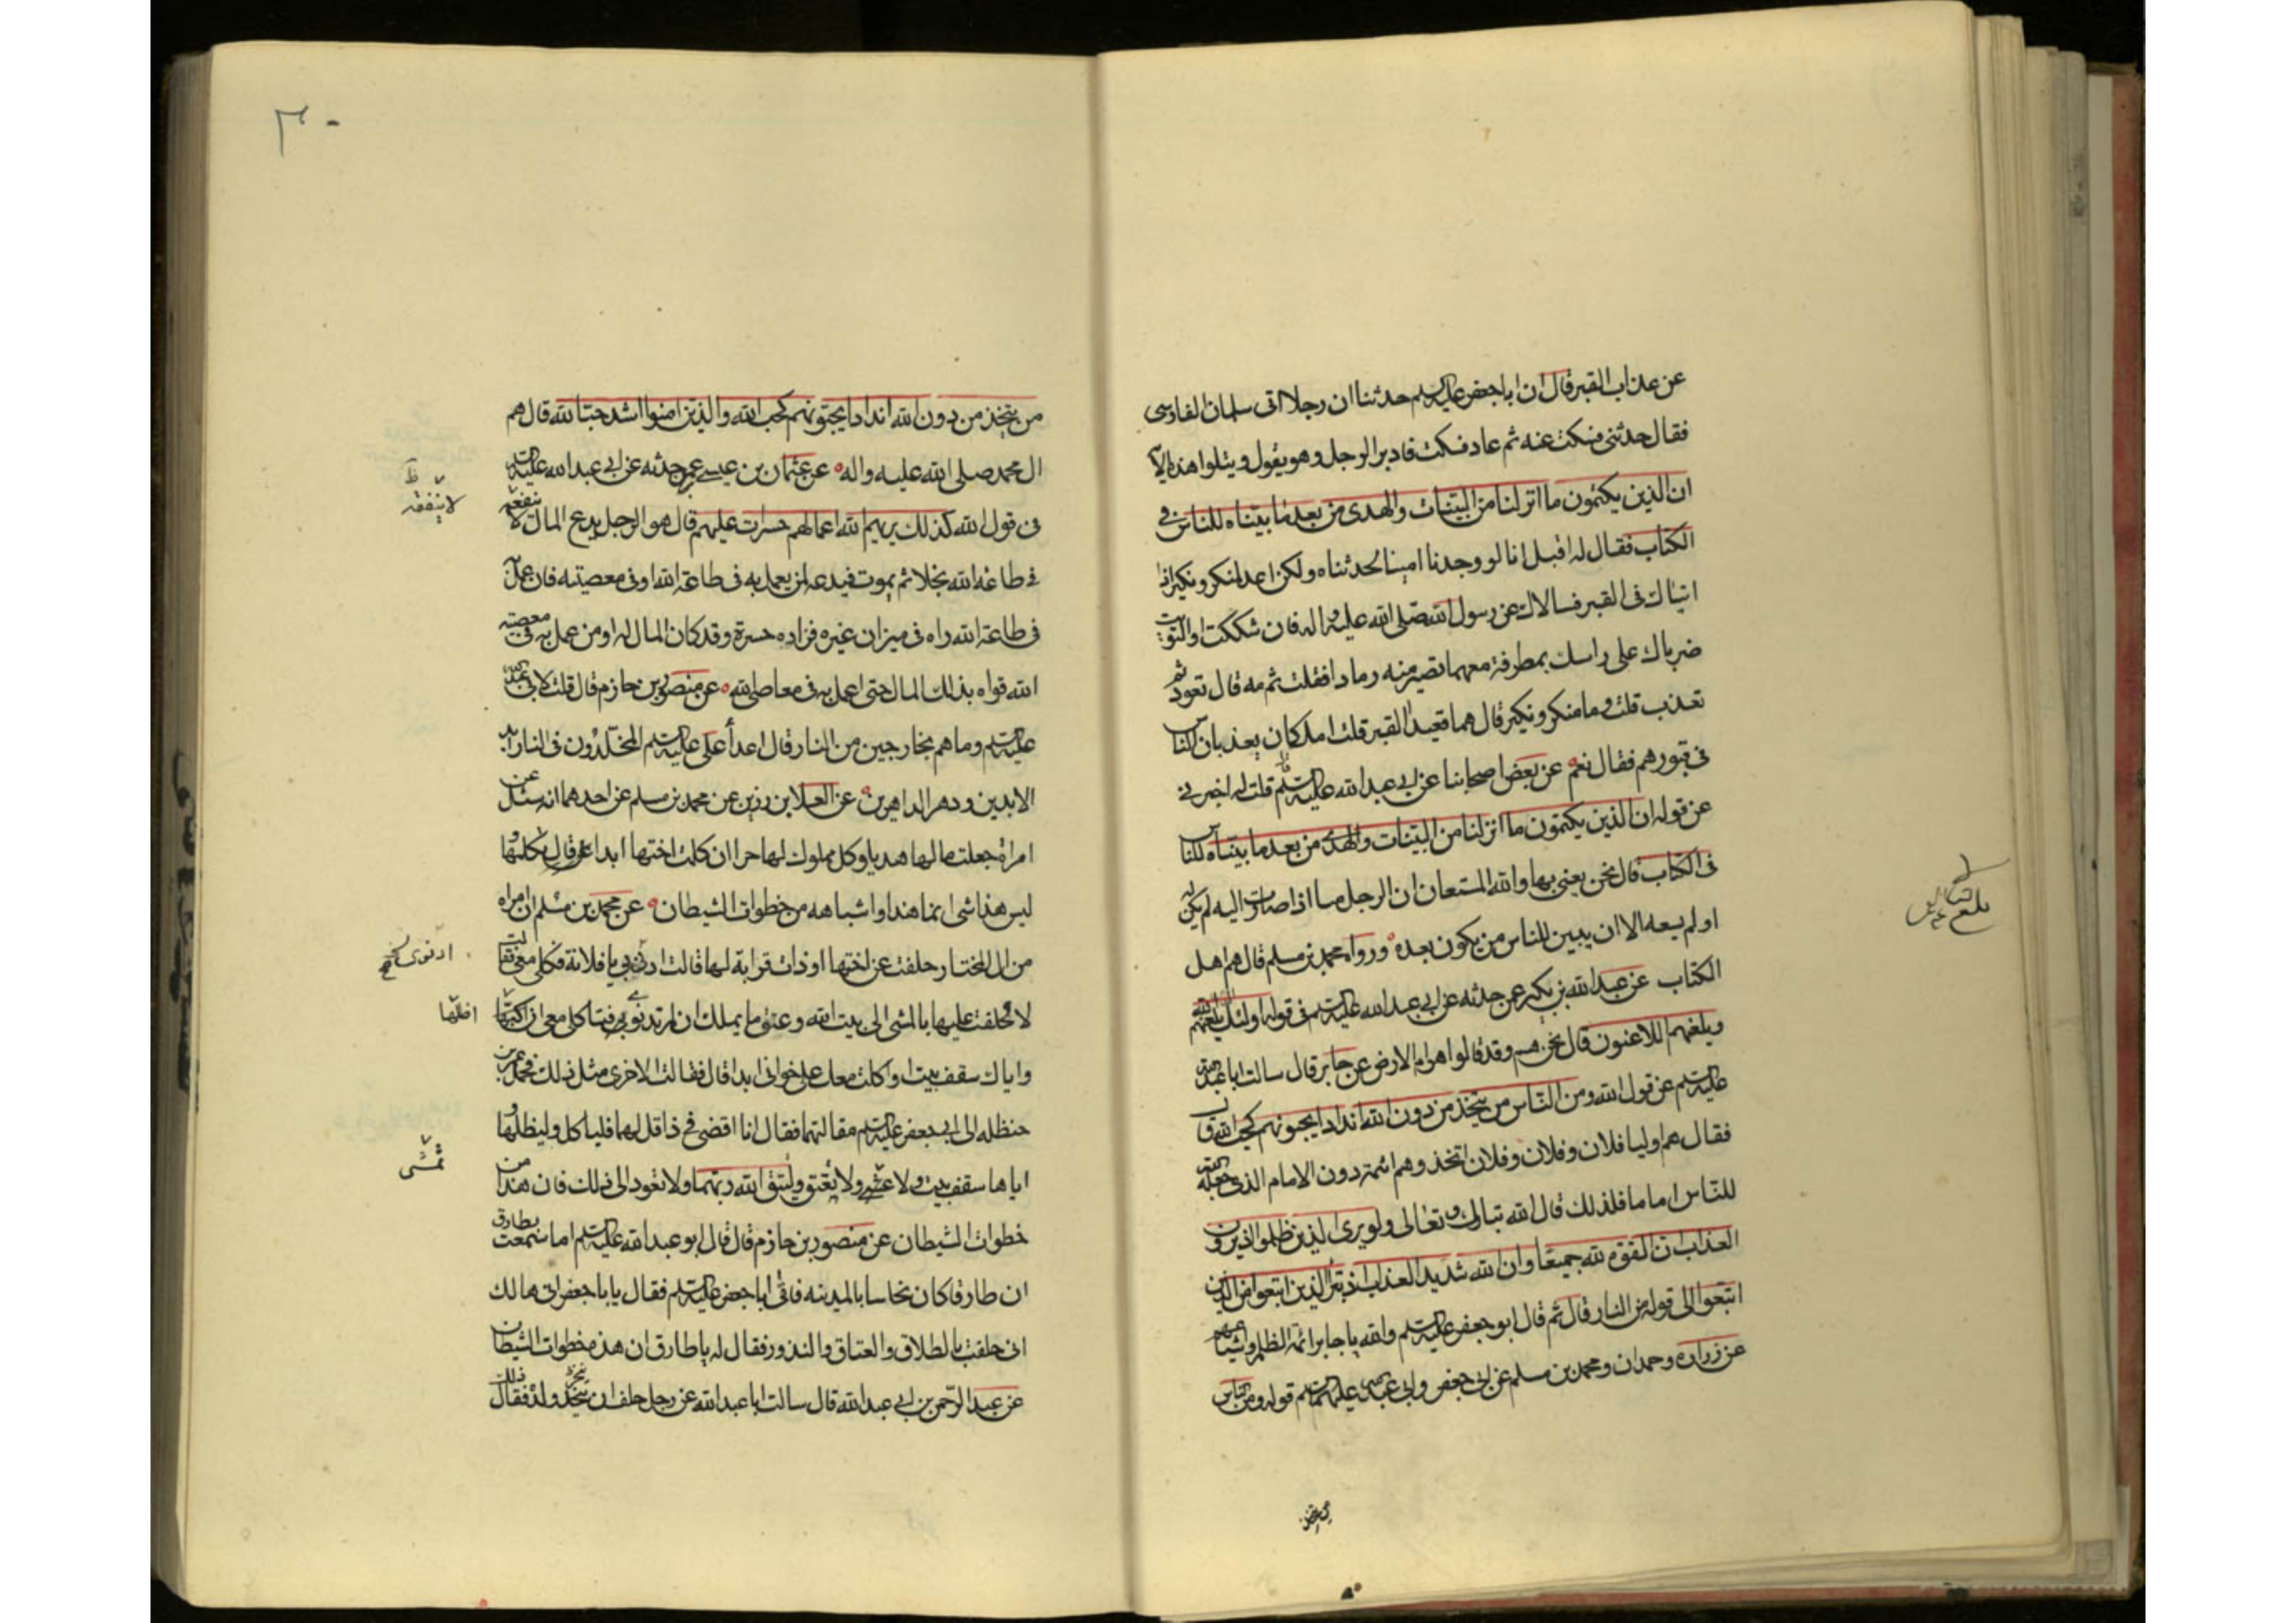 عن عذاب القبر قال ان ابا جعفر عليه السلم حدثنا ان رجلا اتى سلمان الفارسى
فقال حدثنى فسكت عنه ثم عاد فسكت فادبر الرجل وهو يقول ويتلوا هذه الآ
ان الذين يكتمون ما انزلنا من البينات والهدى من بعد ما بيناه للناس فى
الكتاب فقال له اقبل انا لو وجدنا امينا لحدثناه ولكن اعد لمنكر ونكير اذا
اتياك فى القبر فسالاك عن رسول الله صلى الله عليه واله فان شككت او التويت
ضرباك على راسك بمطرفة معهما تصير منه رمادا فقلت ثم مه قال تعود ثم
تعذب قلت وما منكر ونكير قال هما قعيدا القبر قلت املكان يعذبان الناس
فى قبورهم فقال نعم عن بعض اصحابنا عن ابى عبد الله عليه السلم قال قلت له اخبرنى
عن قوله ان الذين يكتمون ما انزلنا من البينات والهدى من بعد ما بيناه للناس
فى الكتاب قال نحن يعنى بها والله المستعان ان الرجل منا اذا صارت اليه لم يكن له
او لم يسعه الا ان يبين للناس من يكون بعده ورواه محمد بن مسلم قال هم اهل
الكتاب عن عبد الله بن بكير عمن حدثه عن ابى عبد الله عليه السلم فى قوله اولئك يلعنهم الله
ويلعنهم اللاعنون قال نحن هم وقد قالوا هوام الارض عن جابر قال سالت ابا عبد الله
عليه السلم عن قول الله ومن الناس من يتخذ من دون الله اندادا يحبونهم كحب الله قال
فقال هم اوليا فلان وفلان وفلان اتخذوهم ائمة دون الامام الذى جعله الله
للناس اماما فلذلك قال الله تبارك وتعالى ولو يرى الذين ظلموا اذ يرون
العذاب ان القوة لله جميعا وان الله شديد العذاب اذ تبرأ الذين اتبعوا من الذين
اتبعوا الى قوله من النار قال ثم قال ابو جعفر عليه السلم والله يا جابر ائمة الظلم واشياعهم
عن زراره وحمران ومحمد بن مسلم عن ابى جعفر وابى عبد الله عليهما السلم قوله ومن الناس
٣٠
من يتخذ من دون الله اندادا يحبونهم كحب الله والذين امنوا اشد حبا لله قال هم
ال محمد صلى الله عليه واله عن عثمان بن عيسى عمن حدثه عن ابى عبد الله عليه السلم
فى قول الله كذلك يريهم الله اعمالهم حسرات عليهم قال هو الرجل يدع المال لا ينفقه
فى طاعة الله بخلا ثم يموت فيدعه لمن يعمل به فى طاعة الله او فى معصيته فان عمل
فى طاعة الله راه فى ميزان غيره فزاده حسرة وقد كان المال له او من عمل به فى معصية
الله قواه بذلك المال حتى اعمل به فى معاصى الله عن منصور بن حازم قال قلت لابى عبد الله
عليه السلم وما هم بخارجين من النار قال اعدأ على عليه السلم المخلدون فى النار ابد
الابدين ودهر الداهرين عن العلا بن رزين عن محمد بن مسلم عن احدهما انه سئل عن
امراة جعلت مالها هديا وكل مملوك لها حرا ان كلمت اختها ابدا قال تكلمها و
ليس هذا شى انما هذا واشباهه من خطوات الشيطان عن محمد بن مسلم ان امراه
من ال المختار حلفت عن اختها او ذات قرابة لها قالت ادنى يا فلانة فكلى معى فقالت
لا فحلفت عليها بالمشى الى بيت الله وعتق ما يملك ان لم تدنو بى فتاكلى معى ان
واياك سقف بيت او اكلت معك على خوان ابدا قال فقالت الاخرى مثل ذلك فحمل عمر بن
حنظله الى ابى جعفر عليه السلم مقالتهما فقال انا اقضى فى ذا قل لهما فلياكل وليظلها و
اياها سقف بيت ولا تمشى ولا يعتق وليتق الله ربهما ولا تعود الى ذلك فان هذا من
خطوات الشيطان عن منصور بن حازم قال قال ابو عبد الله عليه السلم اما سمعت بطارق
ان طارقا كان نخاسا بالمدينه فاتى ابا جعفر عليه السلم فقال يا با جعفر انى هالك
انى حلفت بالطلاق والعتاق والنذور فقال له يا طارق ان هذه من خطوات الشيطان
عن عبد الرحمن بن ابى عبد الله قال سالت ابا عبد الله عن رجل حلف ان ينحر ولده فقال ذلك
لا ينفقه ظ
ادنوى
تمشى
من يتخذ